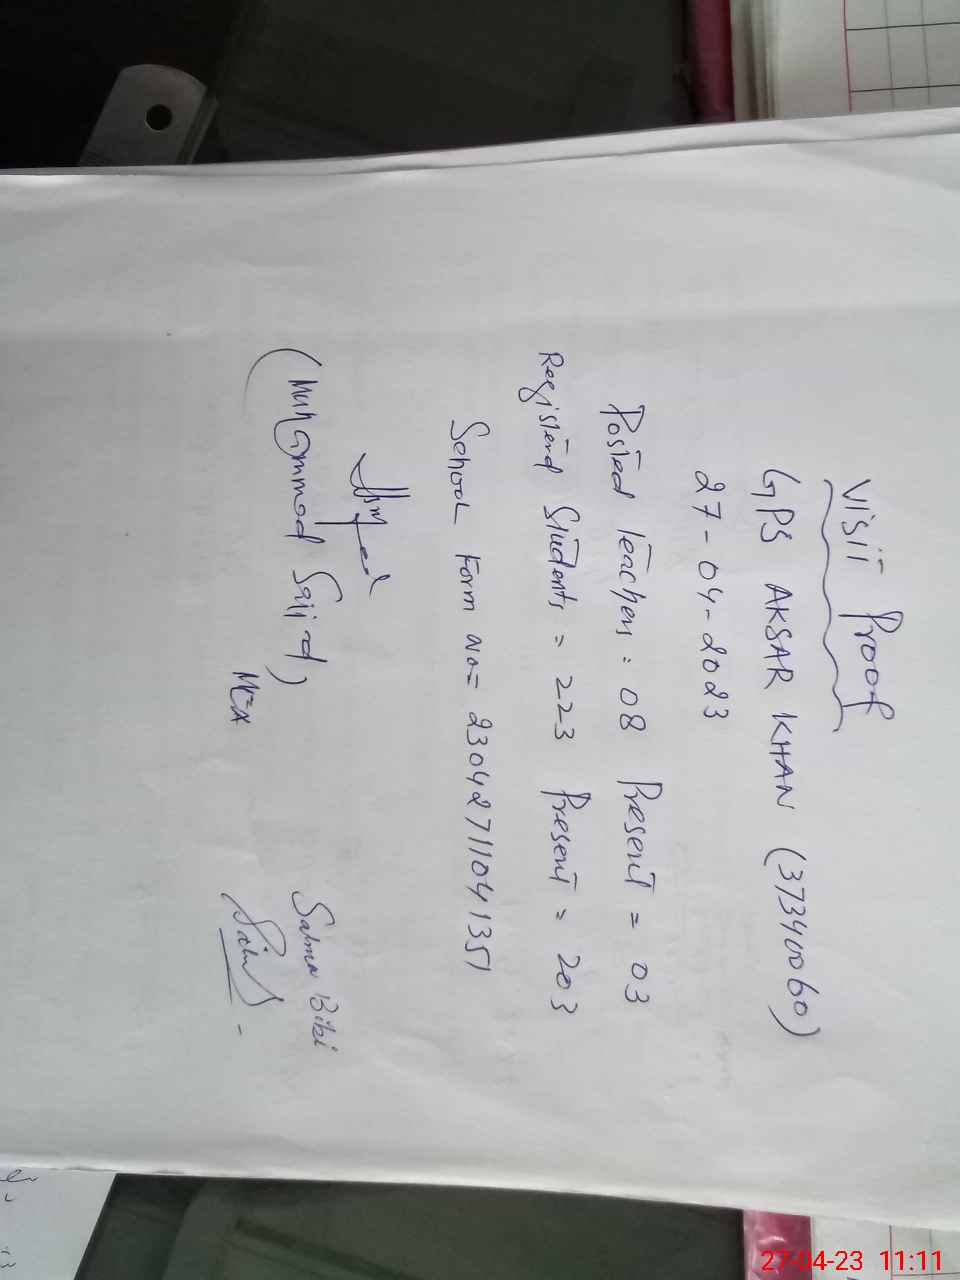 Visit Proof
GPS AKSAR KHAN (37340060)
27-04-2023
Posted Teachers : 08 Present = 03
Registerd Students = 223 Present = 203
School Form No = 23042711041351
(Muhammad Sajid)
MEA
Salma Bibi
27-04-23 11:11